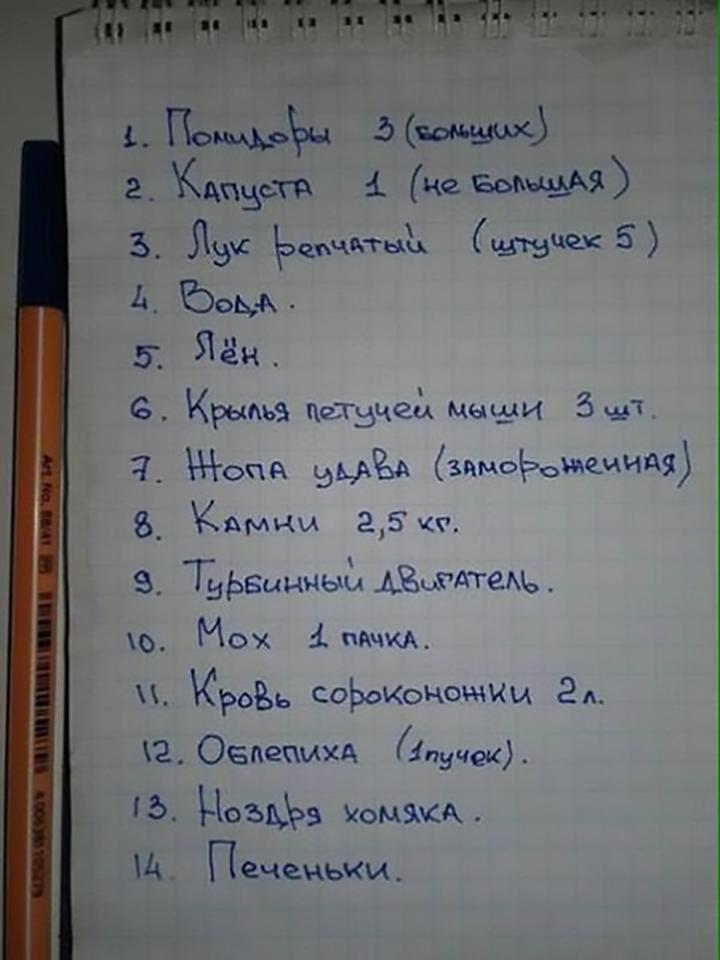 1. Помидоры 3 (больших)
2. Капуста 1 (не большая)
3. Лук репчатый (штучек 5)
4. Вода.
5. Лён.
6. Крылья летучей мыши 3 шт.
7. Жопа удава (замороженная)
8. Камни 2,5 кг.
9. Турбинный двигатель.
10. Мох 1 пачка.
11. Кровь сороконожки 2л.
12. Облепиха (1пучек).
13. Ноздря хомяка.
14. Печеньки.
Art. No. 88/41